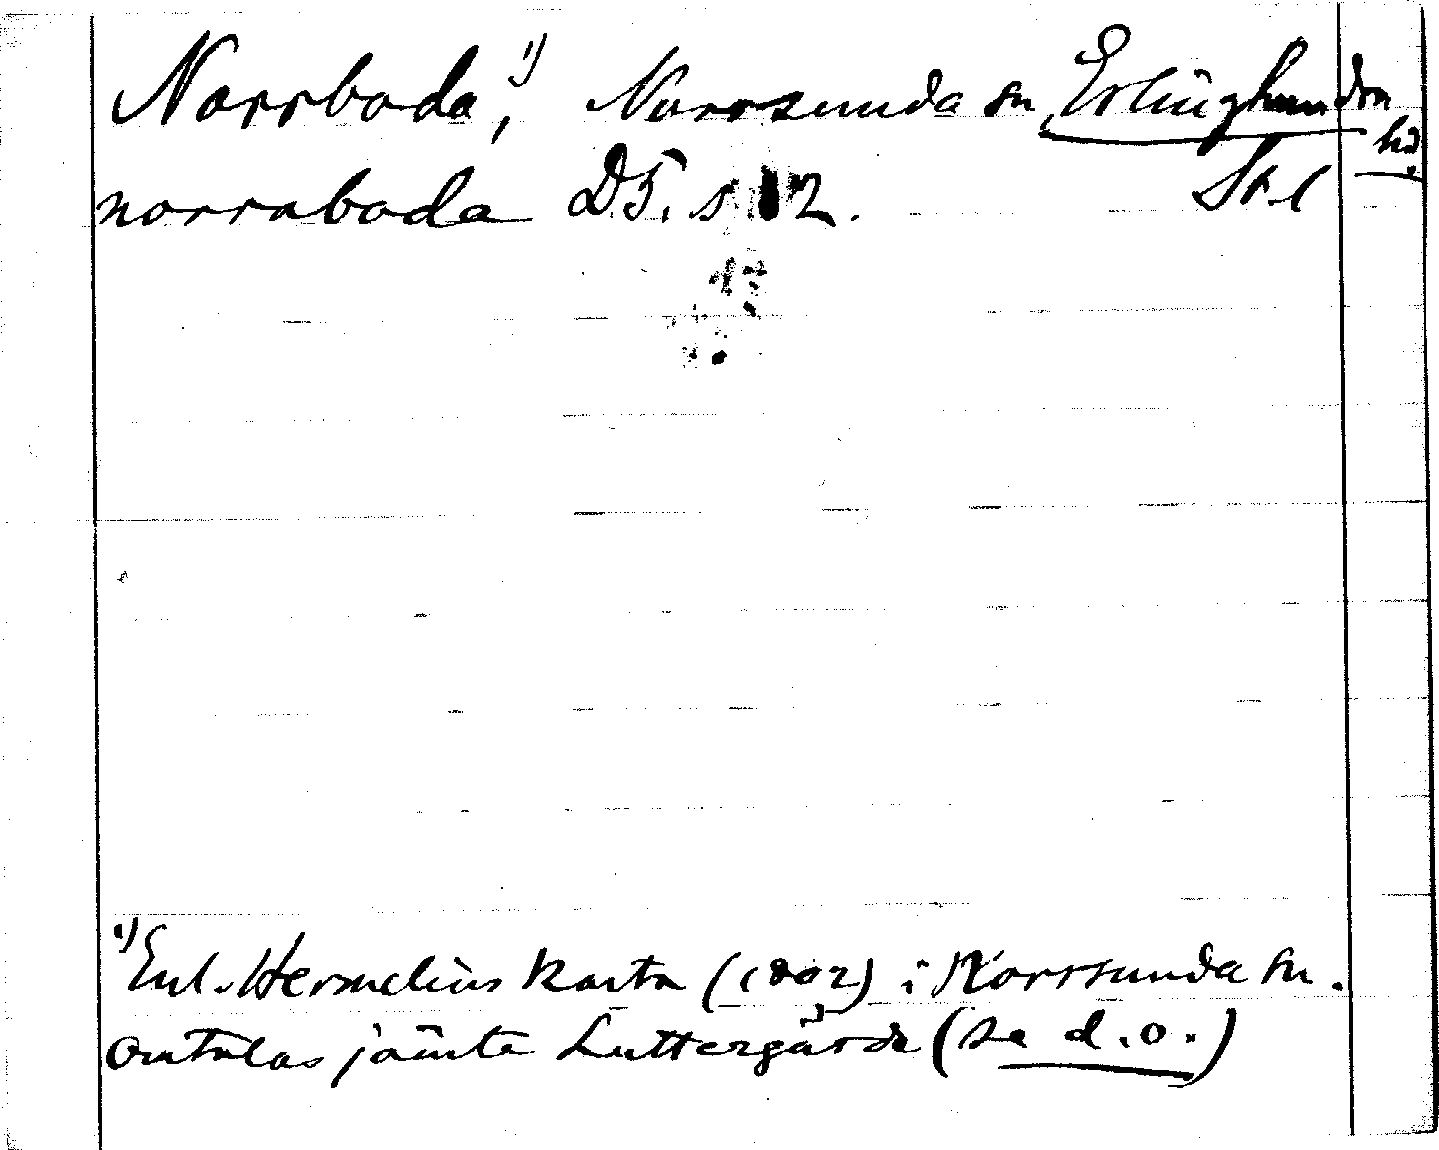 Norrboda,¹⁾ Norrsunda sn, Erlinghundra hd.
norraboda D5. s 12. St. l
¹⁾ Enl. Hermelins karta (1802) i Norrsunda sn.
Omtalas jämte Luttergärde (se d.o.)